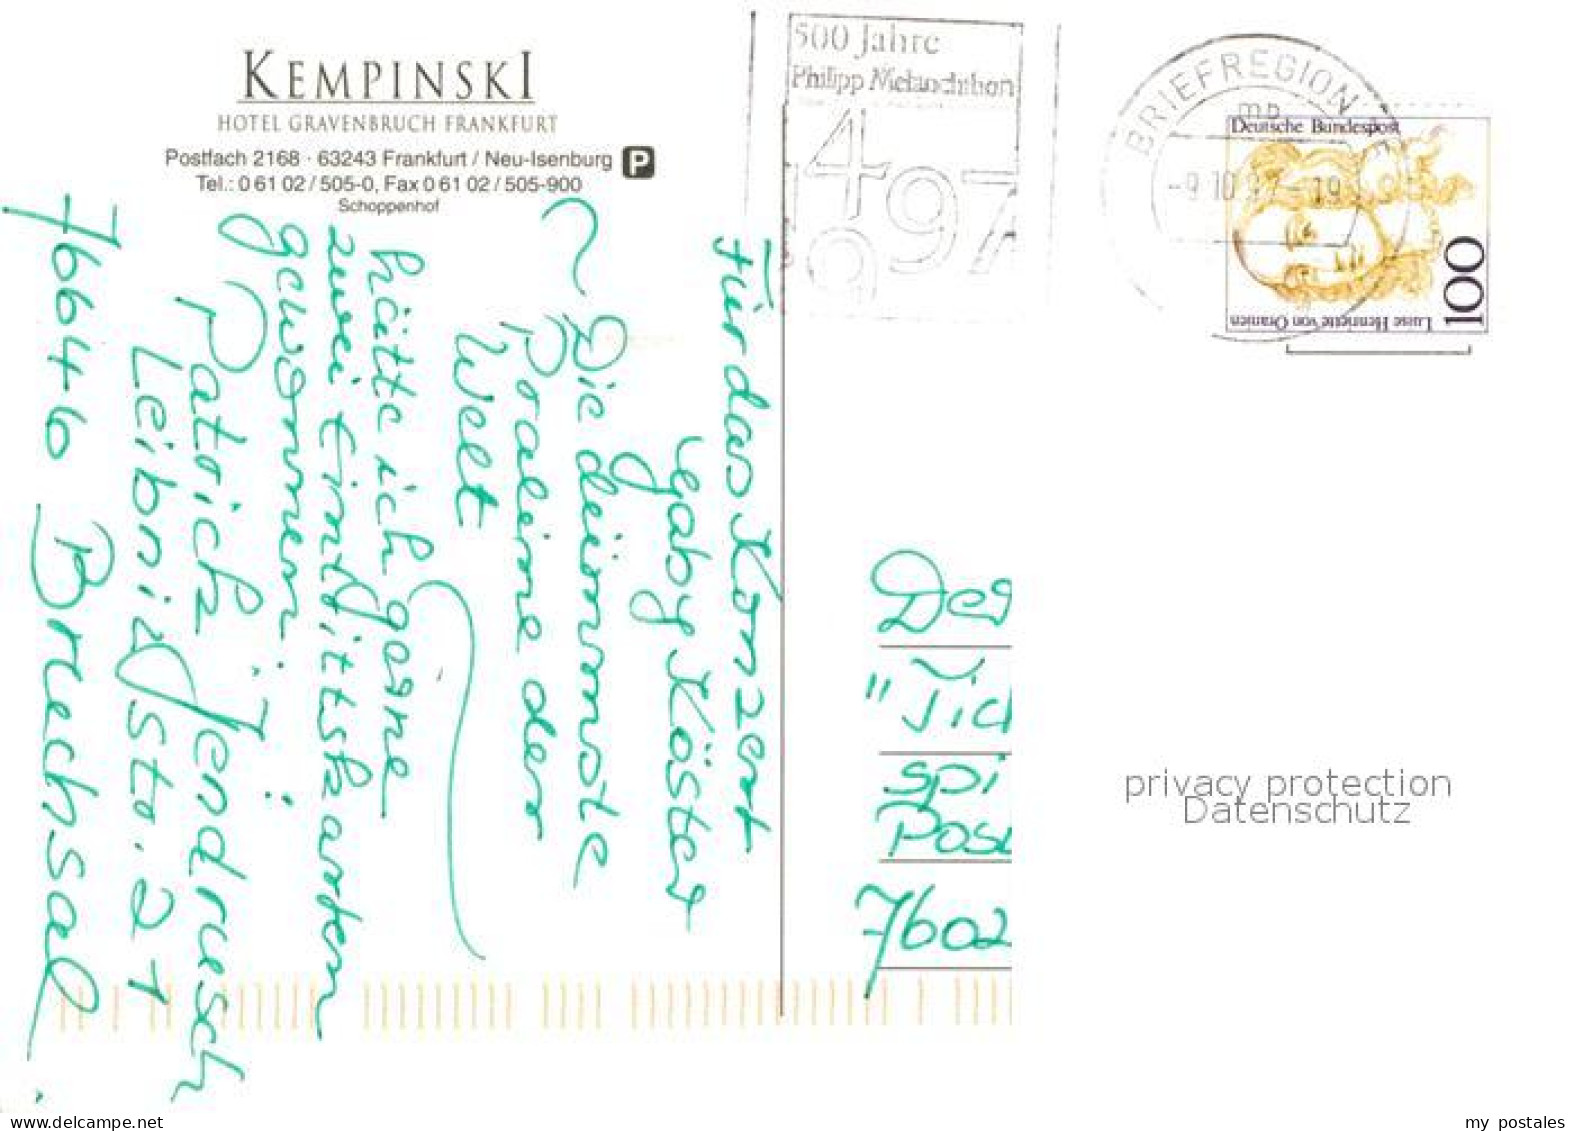 KEMPINSKI
HOTEL GRAVENBRUCH FRANKFURT
Postfach 2168 · 63243 Frankfurt / Neu-Isenburg P
Tel.: 0 61 02 / 505-0, Fax 0 61 02 / 505-900
Schoppenhof
500 Jahre
Philipp Melanchthon
1497
BRIEFREGION
-9.10.97-19
Deutsche Bundespost
Luise Henriette von Oranien
100
Für das Konzert
Gaby Köster
Die dümmste
Praline der
Welt
hätte ich gerne
zwei Eintrittskarten
gewonnen!
Patrick Jendrusch
Leibnizstr. 21
76646 Bruchsal.
Der
"Tic
spi
Pos
7602
privacy protection
Datenschutz
www.delcampe.net
my_postales